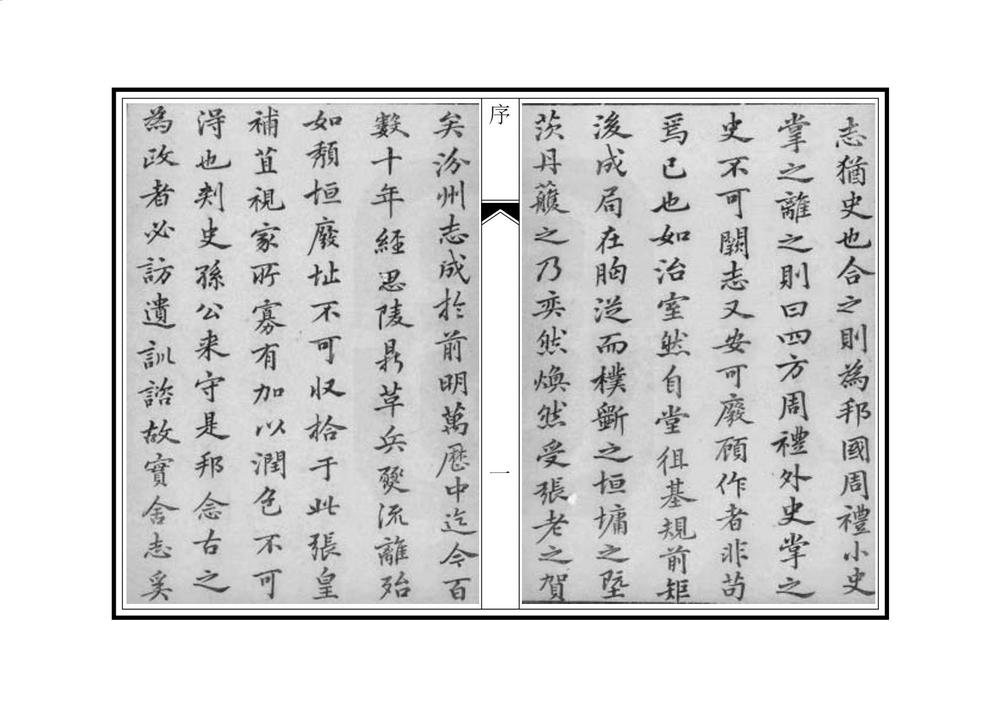 志猶史也合之則為邦國周禮小史
掌之離之則曰四方周禮外史掌之
史不可闕志又安可廢顧作者非苟
焉已也如治室然自堂徂基規前矩
後成局在胸從而樸斲之垣墉之塈
茨丹雘之乃奕然煥然受張老之賀
序
一
矣汾州志成於前明萬歷中迄今百
數十年經思陵鼎革兵燹流離殆
如頹垣廢址不可収拾于此張皇
補苴視家所寡有加以潤色不可
淂也刺史孫公来守是邦念古之
為政者必訪遺訓諮故實舍志奚